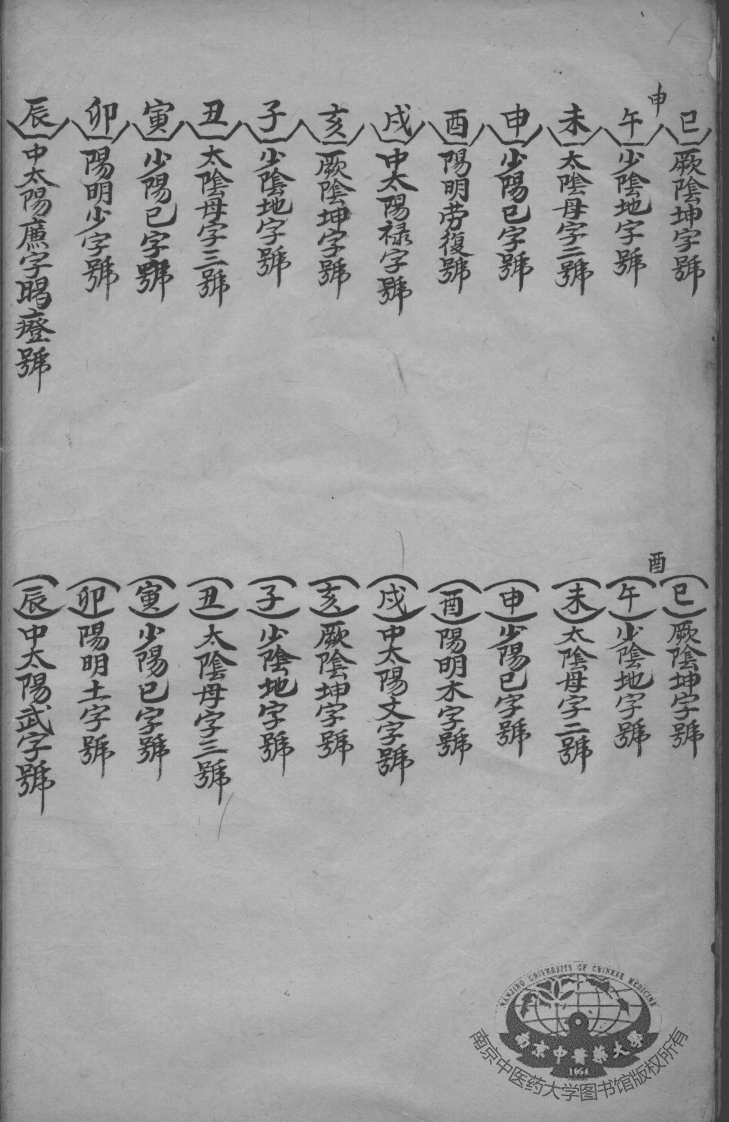 申
巳厥陰坤字號
午少陰地字號
未太陰母字二號
申少陽巳字號
酉陽明劳復號
戌中太陽禄字號
亥厥陰坤字號
子少陰地字號
丑太陰母字三號
寅少陽巳字號
卯陽明少字號
辰中太陽廌字暍瘂號
酉
巳厥陰坤字號
午少陰地字號
未太陰母字二號
申少陽巳字號
酉陽明木字號
戌中太陽文字號
亥厥陰坤字號
子少陰地字號
丑太陰母字三號
寅少陽巳字號
卯陽明土字號
辰中太陽武字號
NANJING UNIVERSITY OF CHINESE MEDICINE
南京中醫藥大學
1954
南京中医药大学图书馆版权所有